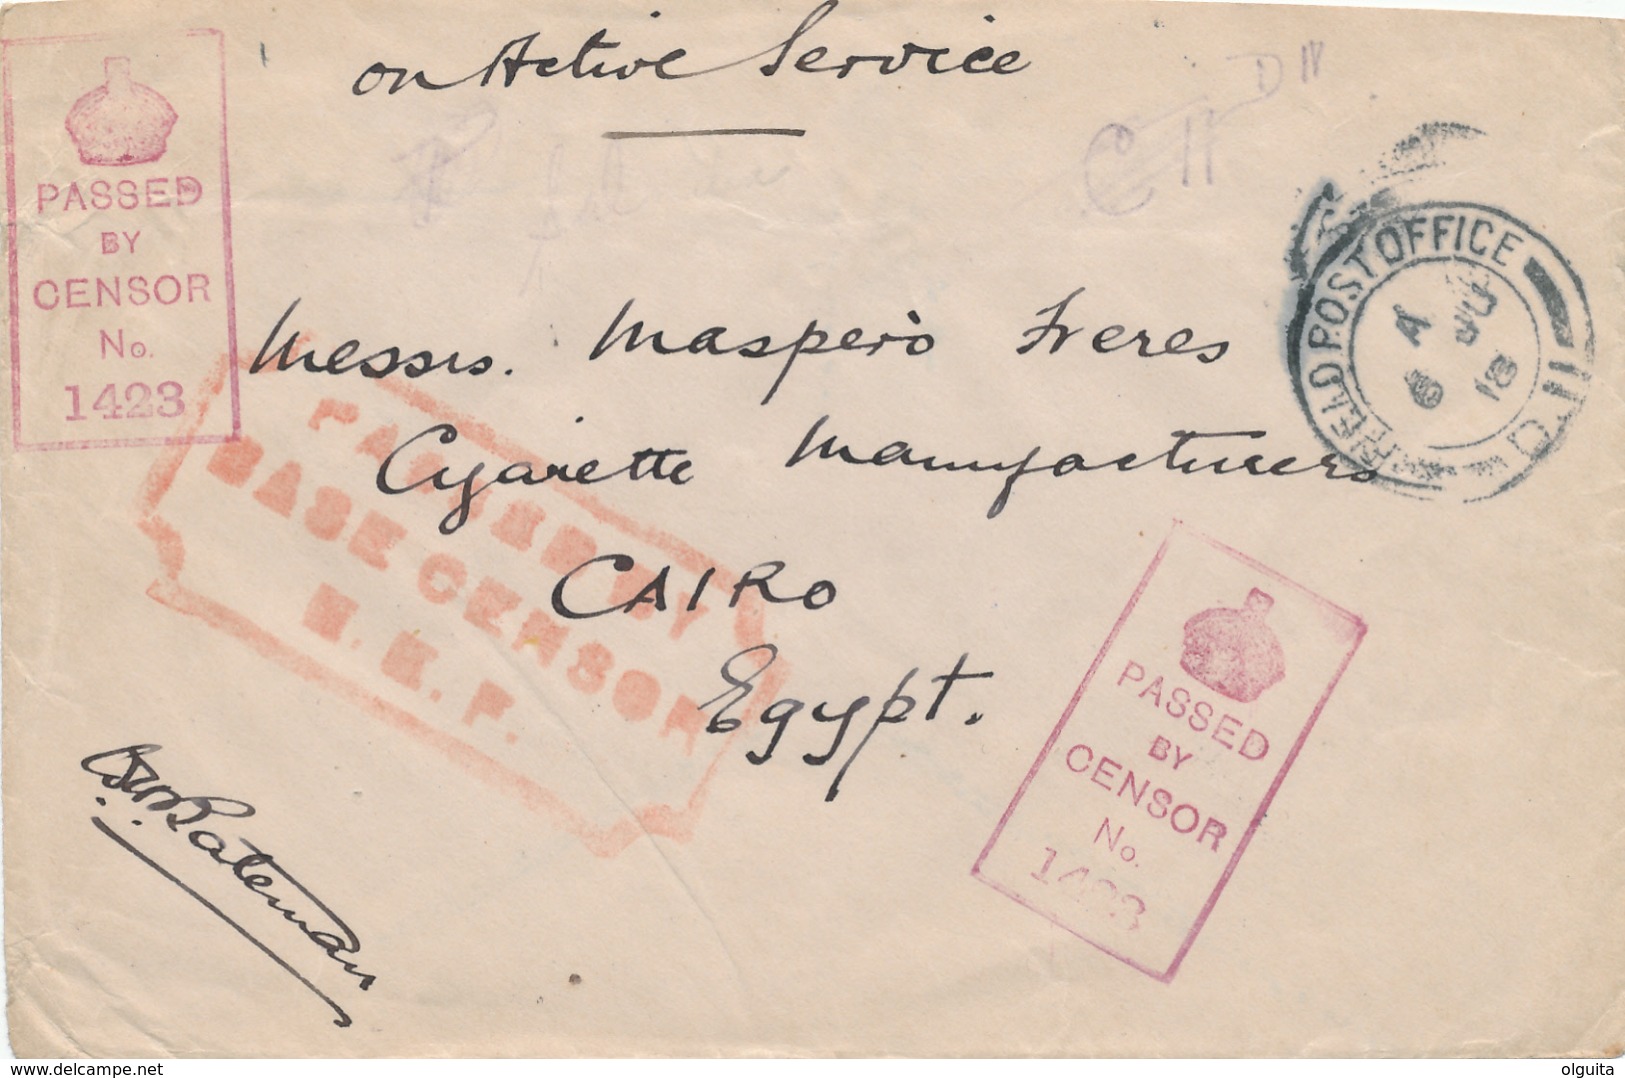 on Active Service
PASSED
BY
CENSOR
No.
1423
FIELD POST OFFICE
A
JU
18
D11
Messrs. Maspero Freres
Cigarette Manufacturers
CAIRO
Egypt.
PASSED BY
BASE CENSOR
PASSED
BY
CENSOR
No.
1423
Bateman
delcampe.net
olguita